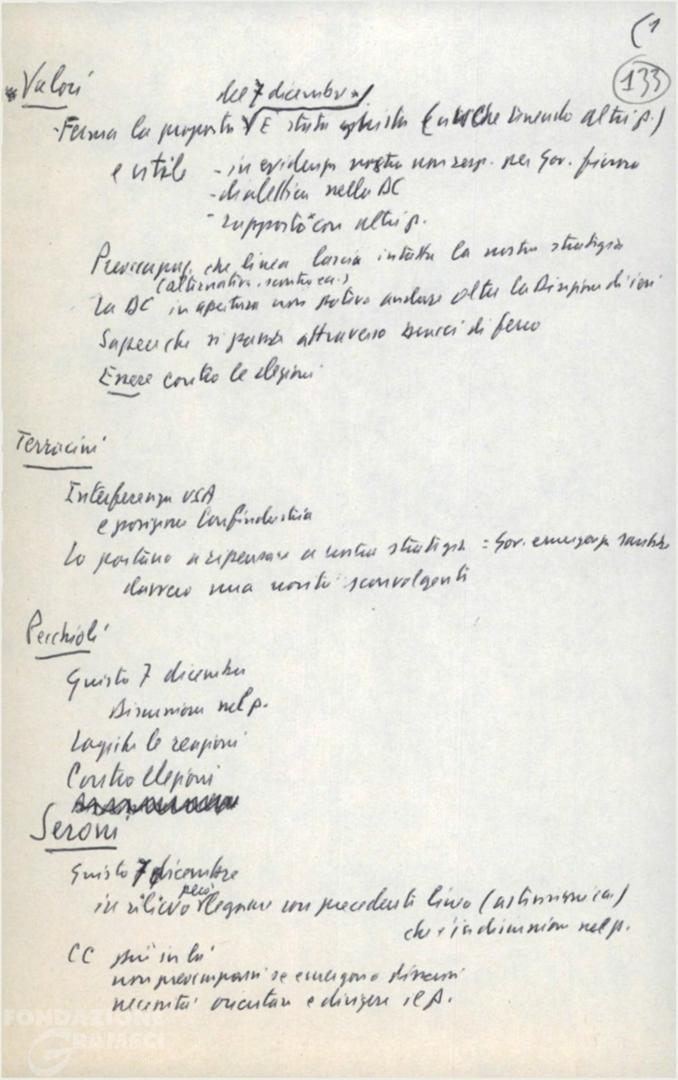 (1
133
Valori
del 7 dicembre
Ferma la proposta È stata giusta (anche tenendo altri p.)
e utile - in evidenza nostra non resp. per Gov. 
- dialettica nella DC
- rapporto con altri p.
Preoccupaz. che linea lascia intatta la nostra strategia
(alternativa,
La DC in apertura non poteva andare oltre la Direzione di ieri
Sapere che si passa attraverso bracci di ferro
Essere contro le elezioni
Terracini
Interferenza USA
e posizione Confindustria
Lo portano a ripensare a nostra strategia = Gov. emergenza
davvero una novità sconvolgente
Pecchioli
Giusto 7 dicembre
Discussione nel p.
Logiche le reazioni
Contro elezioni
Seroni
Giusto 7 dicembre
in rilievo però legame con precedente linea
che è in discussione nel p.
CC più in là
non preoccuparsi se emergono dissensi
necessità orientare e dirigere il p.
FONDAZIONE
GRAMSCI